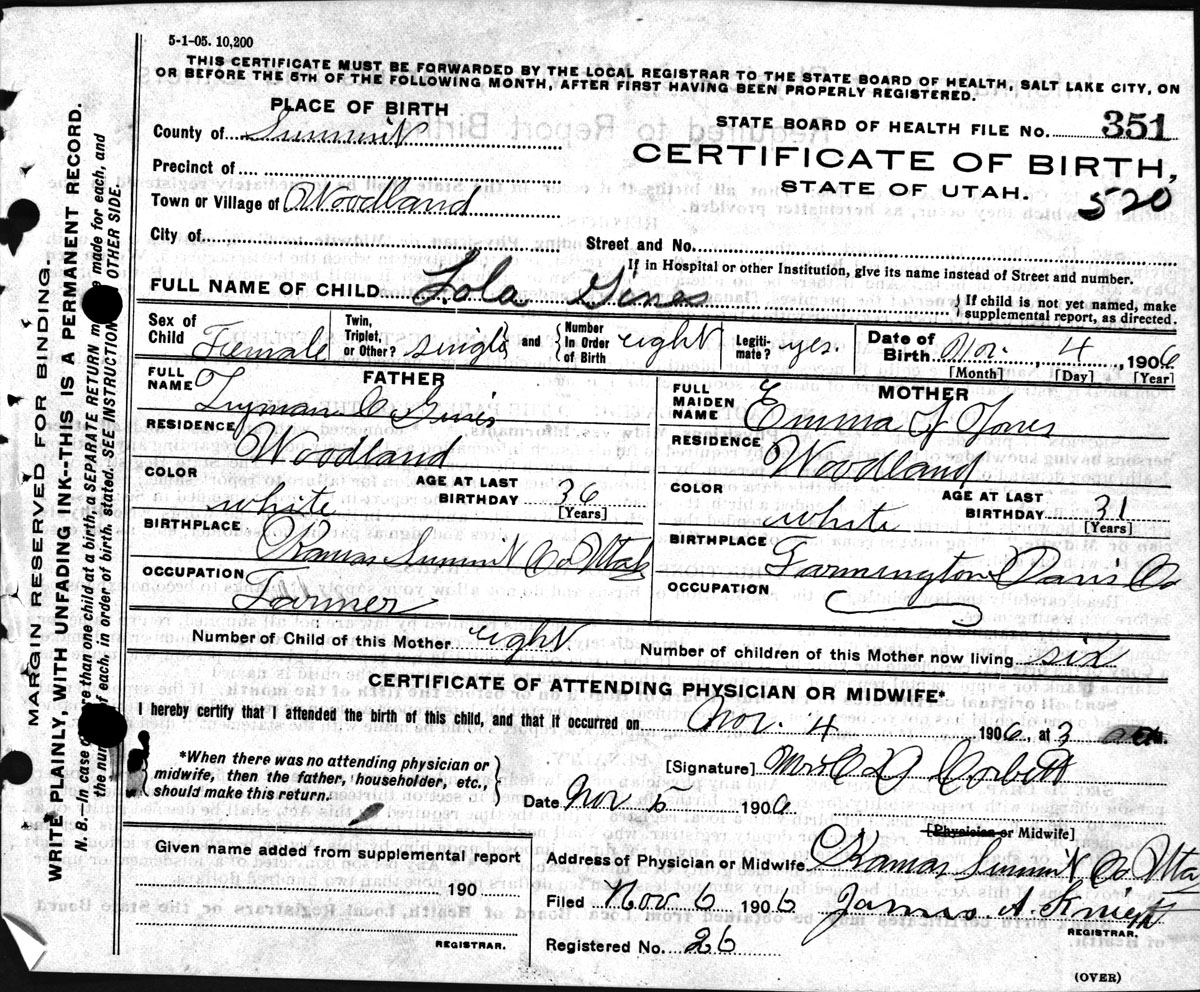 5-1-05. 10,200
THIS CERTIFICATE MUST BE FORWARDED BY THE LOCAL REGISTRAR TO THE STATE BOARD OF HEALTH, SALT LAKE CITY, ON
OR BEFORE THE 5TH OF THE FOLLOWING MONTH, AFTER FIRST HAVING BEEN PROPERLY REGISTERED.
PLACE OF BIRTH
STATE BOARD OF HEALTH FILE No. 351
County of Summit
CERTIFICATE OF BIRTH,
Precinct of
STATE OF UTAH.
520
Town or Village of Woodland
City of
Street and No.
If in Hospital or other Institution, give its name instead of Street and number.
FULL NAME OF CHILD Lola Gines
{ If child is not yet named, make
supplemental report, as directed.
Sex of Child Female
Twin, Triplet, or Other? single } and { Number In Order of Birth eight
Legiti-mate? yes.
Date of Birth Nov. 4, 1906
[Month] [Day] [Year]
FATHER
FULL NAME
Lyman C Gines
RESIDENCE
Woodland
COLOR
white
AGE AT LAST BIRTHDAY 36
[Years]
BIRTHPLACE
Kamas Summit Co Utah
OCCUPATION
Farmer
MOTHER
FULL MAIDEN NAME
Emma J Jones
RESIDENCE
Woodland
COLOR
white
AGE AT LAST BIRTHDAY 31
[Years]
BIRTHPLACE
Farmington Davis Co
OCCUPATION
Number of Child of this Mother eight
Number of children of this Mother now living six
CERTIFICATE OF ATTENDING PHYSICIAN OR MIDWIFE*
I hereby certify that I attended the birth of this child, and that it occurred on Nov. 4 1906, at 3 M.
*When there was no attending physician or
midwife, then the father, householder, etc.,
should make this return.
[Signature] Mrs C D Corbett
Date Nov 5 1906
[Physician or Midwife]
Given name added from supplemental report
190
REGISTRAR.
Address of Physician or Midwife Kamas Summit Co Utah
Filed Nov 6 1906 James A. Knight
REGISTRAR.
Registered No. 26
(OVER)
MARGIN RESERVED FOR BINDING.
WRITE PLAINLY, WITH UNFADING INK--THIS IS A PERMANENT RECORD.
N. B.—In case of more than one child at a birth, a SEPARATE RETURN must be made for each, and
the number of each, in order of birth, stated. SEE INSTRUCTIONS OTHER SIDE.